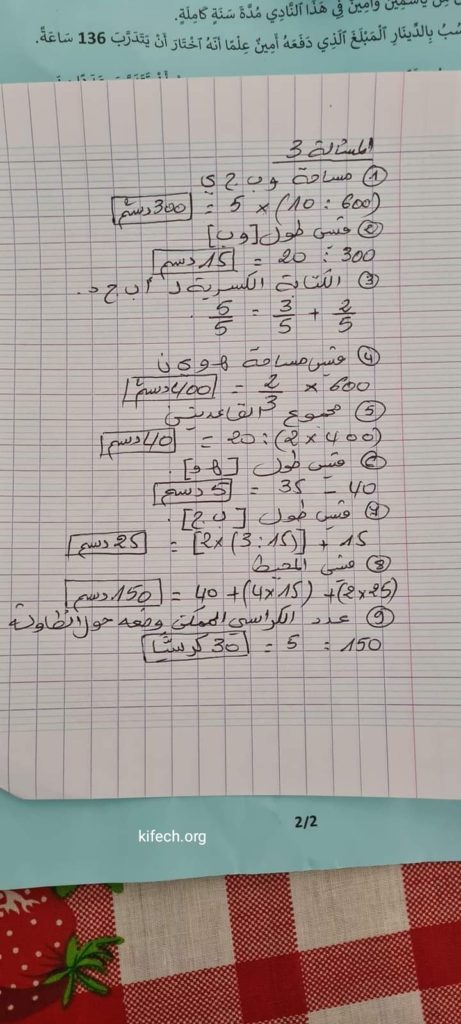 وَأَمِين فِي هَذَا ٱلنَّادِي مُدَّةَ سَنَةٍ كَامِلَةٍ.
بِالدِّينَارِ ٱلْمَبْلَغَ ٱلَّذِي دَفَعَهُ أَمِينٌ عِلْمًا أَنَّهُ ٱخْتَارَ أَنْ يَتَدَرَّبَ 136 سَاعَةً.
المسألة 3
① مساحة و ب ج ي
(600 : 10) × 5 = 300 دسم²
② قيس طول [وب]
300 : 20 = 15 دسم
③ الكتابة الكسرية لـ أ ب ج د.
2/5 + 3/5 = 5/5.
④ قيس مساحة ه و ي ن
600 × 2/3 = 400 دسم²
⑤ مجموع القاعدتين
(400 × 2) : 20 = 40 دسم
⑥ قيس طول [ه و].
40 - 35 = 5 دسم
⑦ قيس طول [ب ج].
15 + [(15 : 3) × 2] = 25 دسم
⑧ قيس المحيط
(25 × 2) + (15 × 4) + 40 = 150 دسم
⑨ عدد الكراسي الممكن وضعه حول الطاولة
150 : 5 = 30 كرسيّا
2/2
kifech.org